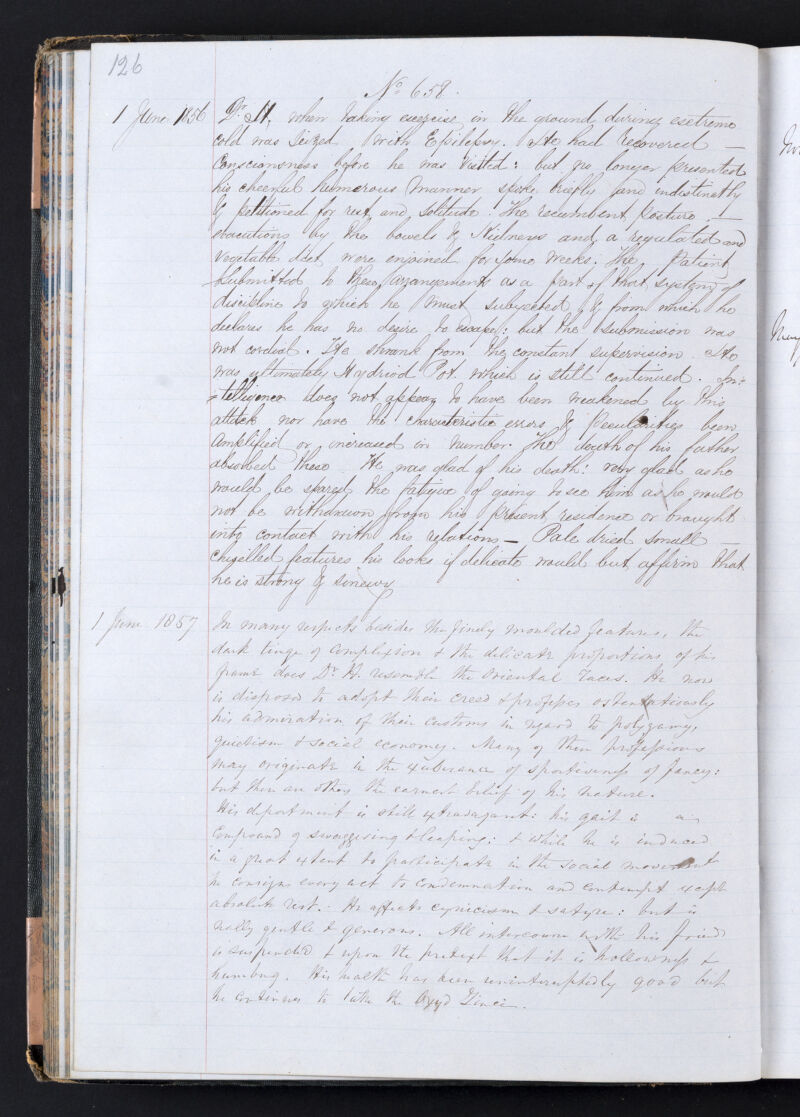 126
No 658.
1 June 1856 Dr. H. when taking exercise in the ground during extreme
cold was seized with Epilepsy. He had recovered —
Consciousness before he was visited: but no longer presented
his cheerful humorous manner spoke briefly and indistinctly
& petitioned for rest and solitude. The recumbent posture —
evacutions by the bowels & and a regulated and
vegetable diet were enjoined for some weeks. The Patient
submitted to these arrangements as a part of that system of
discipline to which he must subjected & from which he
declares he has no desire to escape: but the submission was
not cordial. He shrank from the constant supervision. He
was ultimately Hydriod Pot. which is still continued. In=
=telligence does not appear to have been weakened by this
attack nor have the characteristic errors & Peculiarities been
amplified or increased in number. The death of his father
absolved these He was glad of his death: very glad as he
would be spared the fatigue of going to see him as he would
not be withdrawn from his present residence or brought
into contact with his relations — Pale dried small —
chiselled features his looks if delicate would but affirm that
he is strong & sinewy
1 June 1857 In many respects besides the finely moulded features, the
dark tinge of complexion & the delicate proportions of his
frame does Dr H. resemble the Oriental races. He now
is disposed to adopt their creed & professes ostentatiously
his admiration of their customs in regard to polygamy,
quietism & social economy. Many of these professions
may originate in the exuberance of sportiveness of fancy:
but then are others the earnest belief of his nature.
His deportment is still extravagant: his gait is a
compound of swaggering & leaping: & while he is induced
in a great extent to participate in the social movement
he consigns every act to condemnation and contempt except
absolute rest. He affects cynicism & satyre: but is
really gentle & generous. All intercourse with his friend
is suspended & upon the pretext that it is hollowness &
humbug. His health has been uninterruptedly good but
he continues to take the Oxyd Zinci.